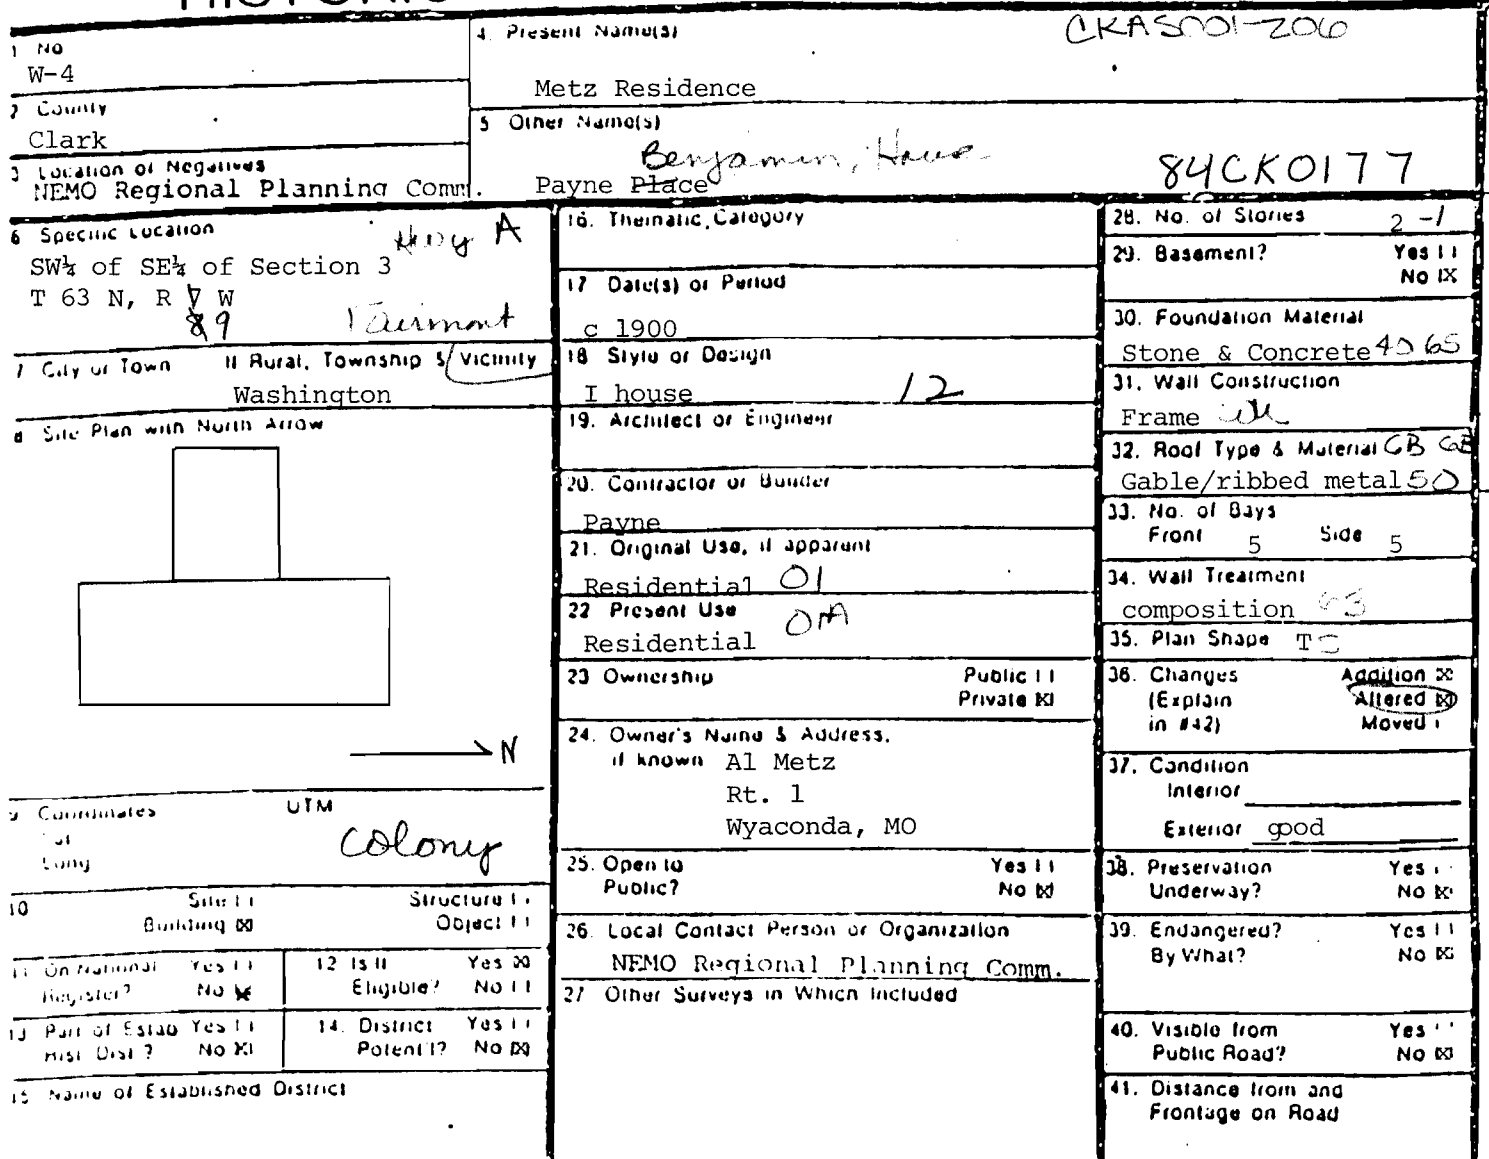 1 No
W-4
2 County
Clark
3 Location of Negatives
NEMO Regional Planning Comm.
4 Present Name(s)
CKAS001-206
Metz Residence
5 Other Name(s)
Benjamin, House
Payne Place
84CK0177
6 Specific Location
Hwy A
SW¼ of SE¼ of Section 3
T 63 N, R 7 W
8 9
Fairmont
7 City or Town If Rural, Township & Vicinity
Washington
8 Site Plan with North Arrow
N
9 Coordinates UTM
Lat
Long
Colony
10 Site [ ] Structure [ ]
Building [X] Object [ ]
11 On National Register? Yes [ ] No [X]
12 Is It Eligible? Yes [X] No [ ]
13 Part of Estab Hist. Dist.? Yes [ ] No [X]
14. District Potent'l? Yes [ ] No [X]
15 Name of Established District
16. Thematic Category
17 Date(s) or Period
c 1900
18 Style or Design
I house 12
19. Architect or Engineer
20. Contractor or Builder
Payne
21. Original Use, if apparent
Residential 01
22 Present Use
Residential 01A
23 Ownership Public [ ]
Private [X]
24. Owner's Name & Address,
if known Al Metz
Rt. 1
Wyaconda, MO
25. Open to Public? Yes [ ]
No [X]
26. Local Contact Person or Organization
NEMO Regional Planning Comm.
27 Other Surveys in Which Included
28. No. of Stories 2 -1
29. Basement? Yes [ ]
No [X]
30. Foundation Material
Stone & Concrete 40 65
31. Wall Construction
Frame
32. Roof Type & Material GB GB
Gable/ribbed metal 50
33. No. of Bays
Front 5 Side 5
34. Wall Treatment
composition 63
35. Plan Shape T
36. Changes Addition [X]
(Explain Altered [X]
in #42) Moved [ ]
37. Condition
Interior
Exterior good
38. Preservation Yes [ ]
Underway? No [X]
39. Endangered? Yes [ ]
By What? No [X]
40. Visible from Yes [ ]
Public Road? No [X]
41. Distance from and
Frontage on Road